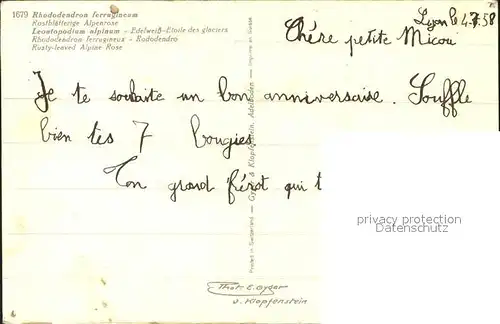 1679 Rhododendron ferrugineum
Rostblätterige Alpenrose
Leontopodium alpinum - Edelweiß-Etoile des glaciers
Rhododendron ferrugineux - Rododendro
Rusty-leaved Alpine Rose
Lyon le 4.7.58
Chère petite Micou
Je te souhaite un bon anniversaire. Souffle
bien tes 7 bougies
Ton grand frérot qui t
privacy protection
Datenschutz
Printed in Switzerland — Gyger & Klopfenstein, Adelboden — Imprimé en Suisse
Phot. E. Gyger
u. Klopfenstein